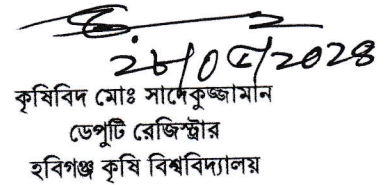 ২৮/০৫/২০২৪
কৃষিবিদ মোঃ সাদেকুজ্জামান
ডেপুটি রেজিস্ট্রার
হবিগঞ্জ কৃষি বিশ্ববিদ্যালয়